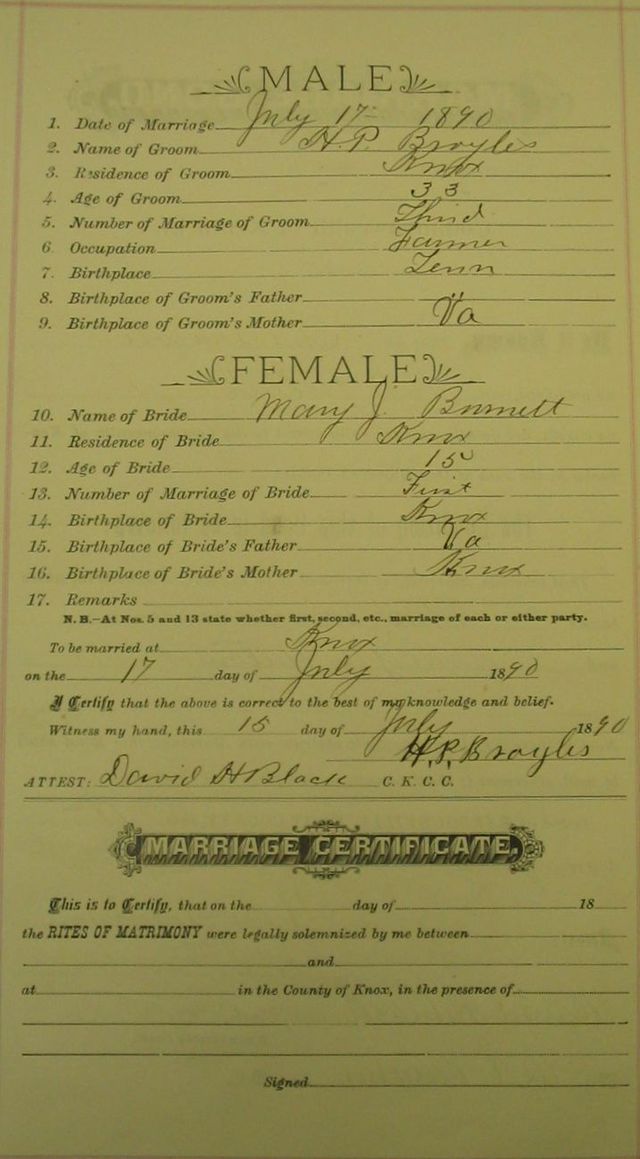 MALE
1. Date of Marriage July 17 1890
2. Name of Groom H. P. Broyles
3. Residence of Groom Knox
4. Age of Groom 33
5. Number of Marriage of Groom Third
6. Occupation Farmer
7. Birthplace Tenn
8. Birthplace of Groom's Father "
9. Birthplace of Groom's Mother Va
FEMALE
10. Name of Bride Mary J. Burnett
11. Residence of Bride Knox
12. Age of Bride 15
13. Number of Marriage of Bride First
14. Birthplace of Bride Knox
15. Birthplace of Bride's Father Va
16. Birthplace of Bride's Mother Knox
17. Remarks
N. B.—At Nos. 5 and 13 state whether first, second, etc., marriage of each or either party.
To be married at Knox
on the 17 day of July 1890
I Certify that the above is correct to the best of my knowledge and belief.
Witness my hand, this 15 day of July 1890
H. P. Broyles
ATTEST: David H Black C. K. C. C.
MARRIAGE CERTIFICATE.
This is to Certify, that on the day of 18
the RITES OF MATRIMONY were legally solemnized by me between
and
at in the County of Knox, in the presence of
Signed